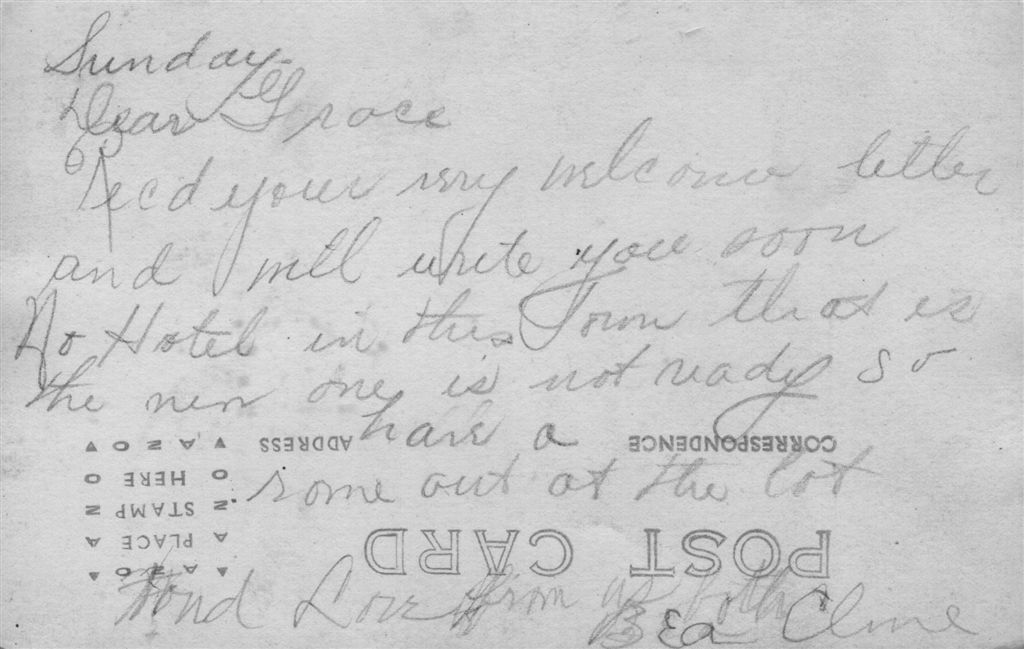 Sunday.
Dear Grace
Rec'd your very welcome letter
and will write you soon
No Hotel in this Town that is
the new one is not ready so
have a
CORRESPONDENCE
ADDRESS
rome out at the lot
POST CARD
AZO
PLACE
STAMP
HERE
AZO
Fond Love from us both
Bea